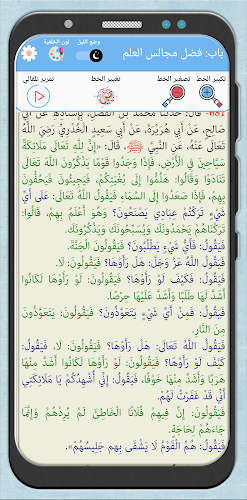 باب: فضل مجالس العلم
وضع الليل
لون الخلفية
تكبير الخط
تصغير الخط
تغيير الخط
تمرير تلقائي
681- قال: حدثنا محمد بن الفضل، بإسناده عن أبي
صَالِحٍ، عَنْ أَبِي هُرَيْرَةَ، عَنْ أَبِي سَعِيدٍ الْخُدْرِيِّ رَضِيَ اللَّهُ
تَعَالَى عَنْهُ، عَنِ النَّبِيِّ ﷺ، قَالَ: «إِنَّ لِلَّهِ تَعَالَى مَلَائِكَةً
سَيَّاحِينَ فِي الْأَرْضِ، فَإِذَا وَجَدُوا قَوْمًا يَذْكُرُونَ اللَّهَ تَعَالَى
تَنَادَوْا وَقَالُوا: هَلُمُّوا إِلَى بُغْيَتِكُمْ، فَيَجِيئُونَ فَيَحُفُّونَ
بِهِمْ، فَإِذَا صَعِدُوا إِلَى السَّمَاءِ فَيَقُولُ اللَّهُ تَعَالَى: عَلَى أَيِّ
شَيْءٍ تَرَكْتُمْ عِبَادِي يَصْنَعُونَ؟ وَهُوَ أَعْلَمُ بِهِمْ، قَالُوا:
تَرَكْنَاهُمْ يَحْمَدُونَكَ وَيُسَبِّحُونَكَ وَيَذْكُرُونَكَ.
فَيَقُولُ: فَأَيَّ شَيْءٍ يَطْلُبُونَ؟ فَيَقُولُونَ الْجَنَّةَ.
فَيَقُولُ اللَّهُ عَزَّ وَجَلَّ: هَلْ رَأَوْهَا؟ فَيَقُولُونَ: لَا.
فَيَقُولُ: فَكَيْفَ لَوْ رَأَوْهَا؟ فَيَقُولُونَ: لَوْ رَأَوْهَا لَكَانُوا
أَشَدَّ لَهَا طَلَبًا وَأَشَدَّ عَلَيْهَا حِرْصًا.
فَيَقُولُ: فَمِنْ أَيِّ شَيْءٍ يَتَعَوَّذُونَ؟ فَيَقُولُونَ: يَتَعَوَّذُونَ
مِنَ النَّارِ.
فَيَقُولُ اللَّهُ تَعَالَى: هَلْ رَأَوْهَا؟ فَيَقُولُونَ: لَا، فَيَقُولُ:
كَيْفَ لَوْ رَأَوْهَا؟ فَيَقُولُونَ: لَوْ رَأَوْهَا لَكَانُوا أَشَدَّ مِنْهَا
هَرَبًا وَأَشَدَّ مِنْهَا خَوْفًا، فَيَقُولُ: إِنِّي أُشْهِدُكُمْ يَا مَلَائِكَتِي
أَنِّي قَدْ غَفَرْتُ لَهُمْ.
فَيَقُولُونَ: إِنَّ فِيهِمْ فُلَانًا الْخَاطِئَ لَمْ يُرِدْهُمْ وَإِنَّمَا
جَاءَهُمْ لِحَاجَةٍ.
فَيَقُولُ: هُمُ الْقَوْمُ لَا يَشْقَى بِهِمْ جَلِيسُهُمْ».